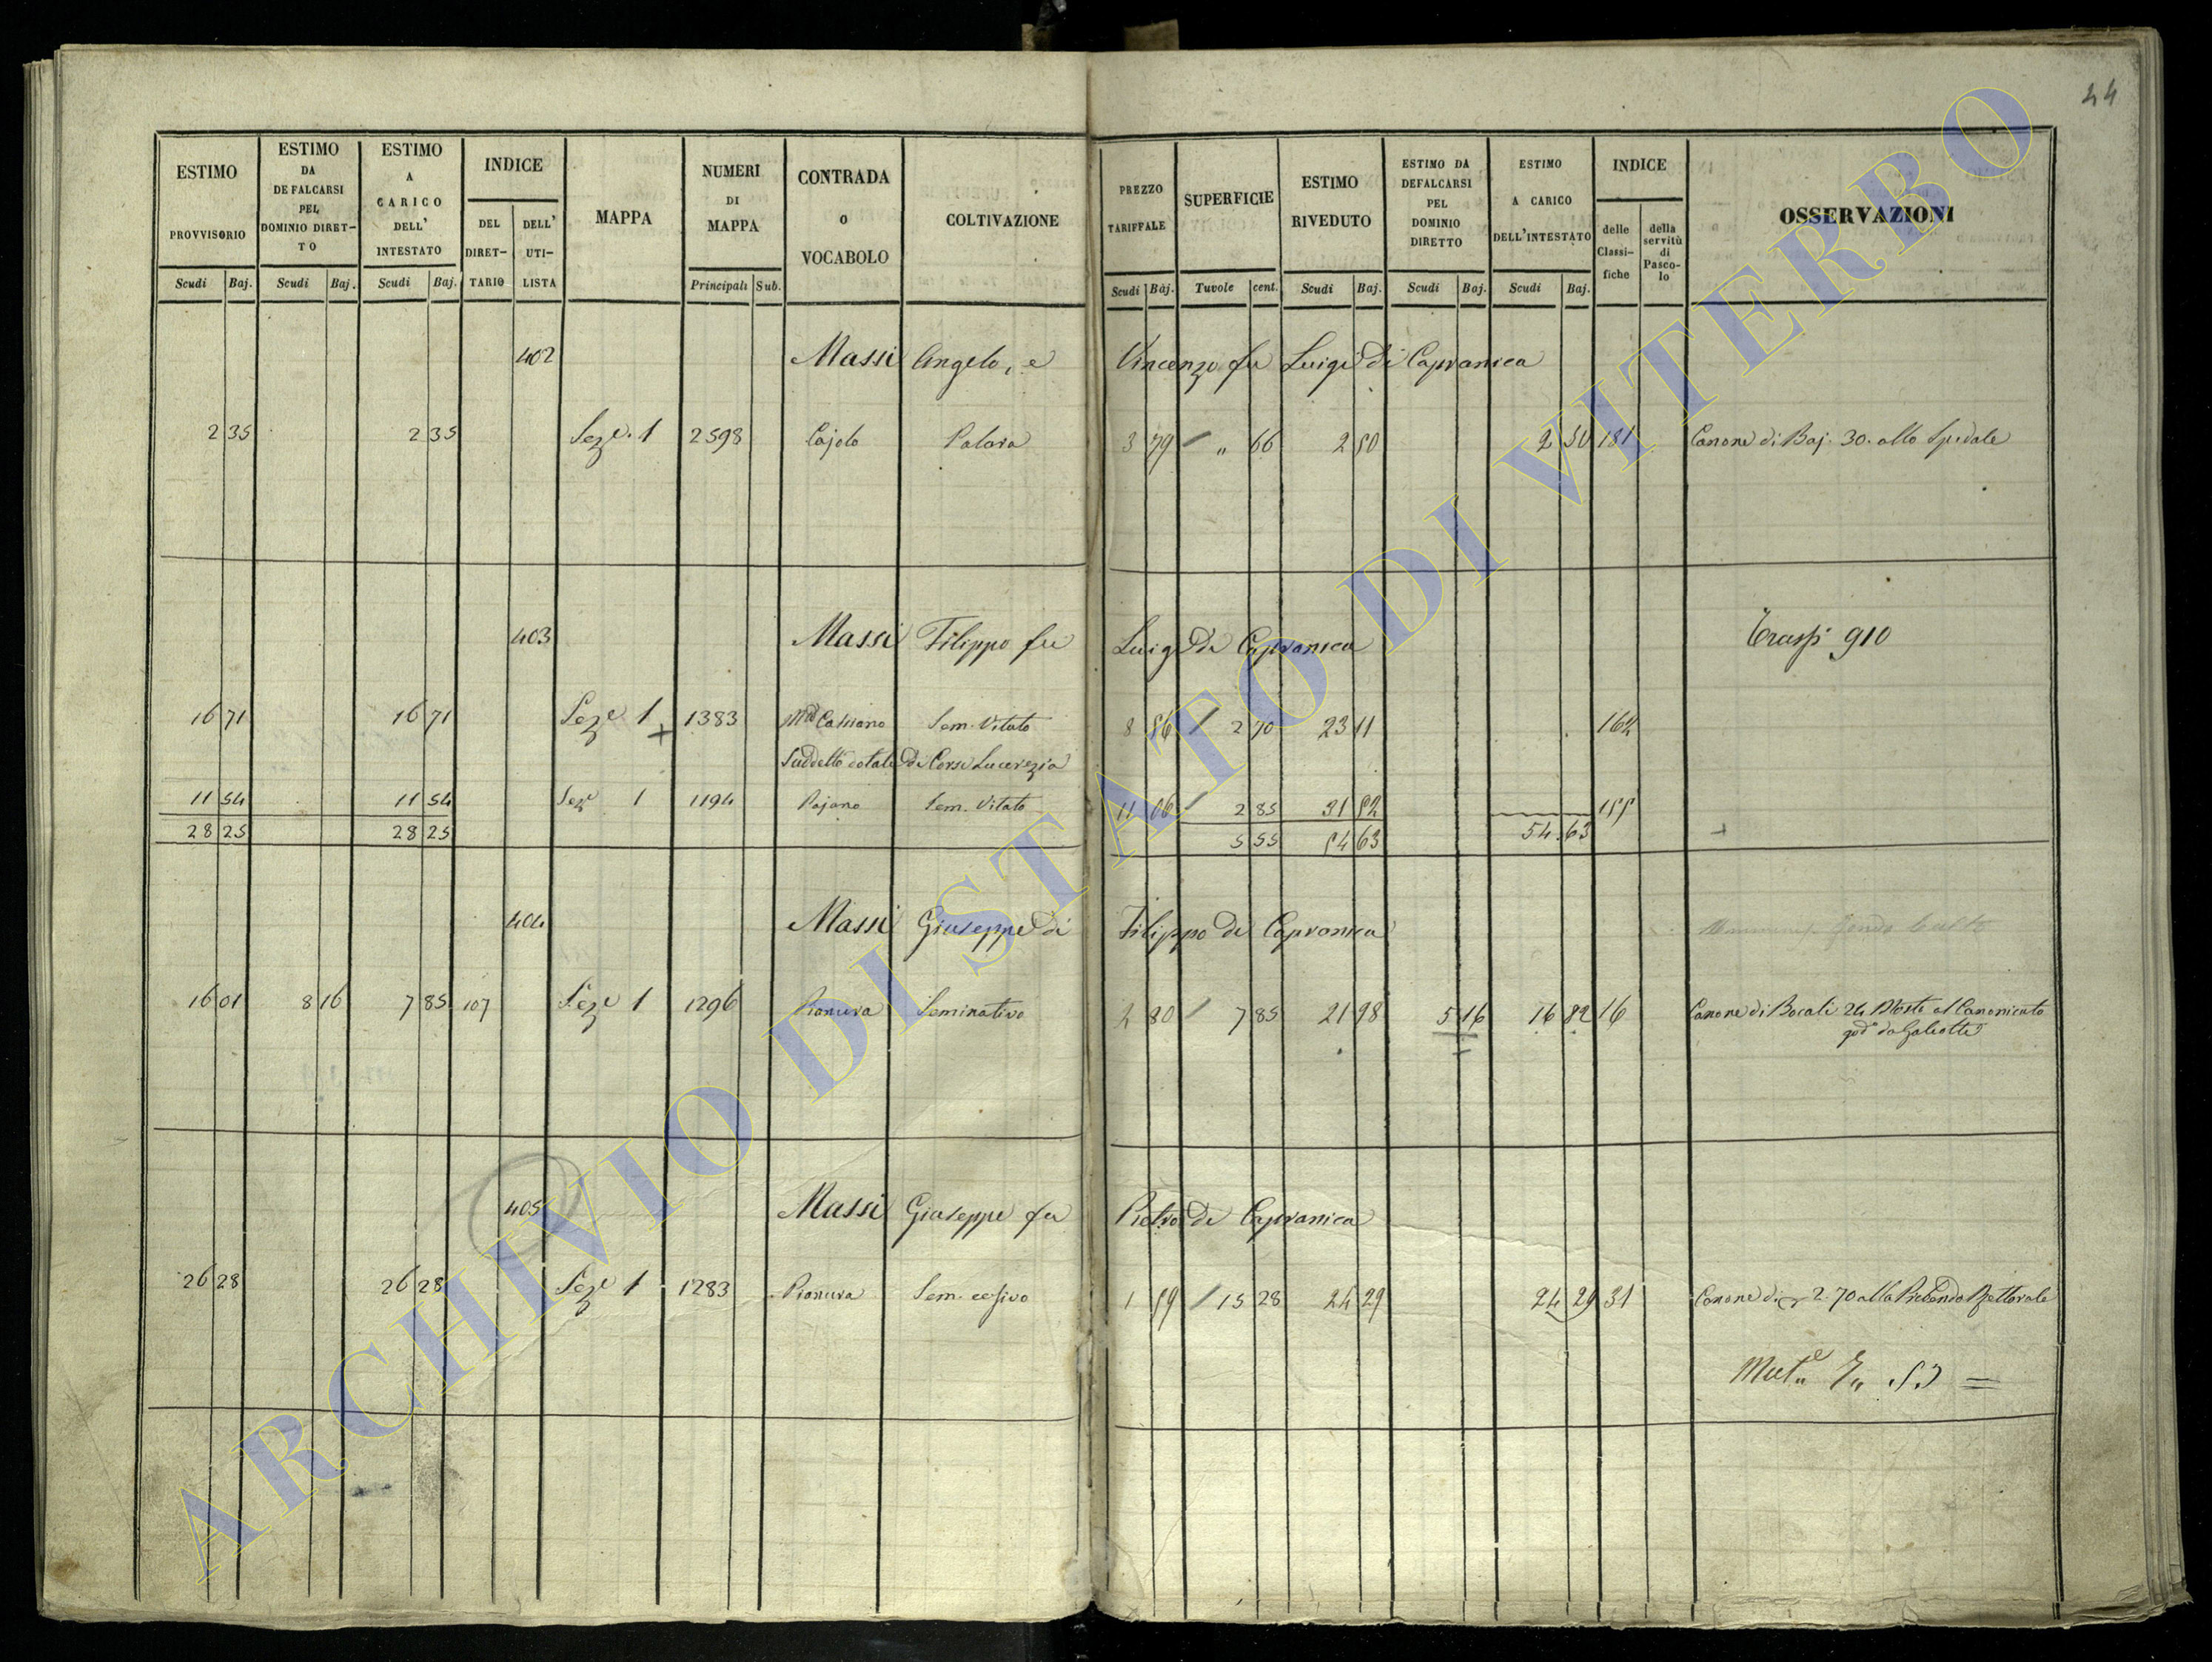 44
ESTIMO PROVVISORIO Scudi Baj.
ESTIMO DA DEFALCARSI PEL DOMINIO DIRET-TO Scudi Baj.
ESTIMO A CARICO DELL' INTESTATO Scudi Baj.
INDICE DEL DIRET-TARIO DELL' UTI-LISTA
MAPPA
NUMERI DI MAPPA Principali Sub.
CONTRADA O VOCABOLO
COLTIVAZIONE
PREZZO TARIFFALE Scudi Baj.
SUPERFICIE Tavole cent.
ESTIMO RIVEDUTO Scudi Baj.
ESTIMO DA DEFALCARSI PEL DOMINIO DIRETTO Scudi Baj.
ESTIMO A CARICO DELL'INTESTATO Scudi Baj.
INDICE delle Classi-fiche della servitù di Pasco-lo
OSSERVAZIONI
402 Massi Angelo, e Vincenzo fu Luigi di Capranica
2 35 2 35 Seze. 1 2598 Cajolo 3 79 " 66 2 50 2 50 181 Canone di Baj. 30. allo Spedale
403 Massi Filippo fu Luigi di Capranica Trasp 910
16 71 16 71 Seze 1 1383 Sem. Vitato 8 56 2 70 23 11 164
Suddetto dotale di Corsi Lucrezia
11 54 11 54 Seze 1 1194 Pojano Sem. Vitato 11 06 2 85 31 52 155
28 25 28 25 5 55 54 63 54 63
404 Massi Giuseppe di Filippo di Capranica
16 01 8 16 7 85 107 Seze 1 1296 Pianura Seminativo 2 80 7 85 21 98 5 16 16 82 16 Canone di Bocali 24 Mosto al Canonicato
god. da Galeotti
405 Massi Giuseppe fu Pietro di Capranica
26 28 26 28 Seze 1 1283 Pianura Sem. 1 59 15 28 24 29 24 29 31 Canone di 2.70 alla Prebenda Rettorale
ARCHIVIO DI STATO DI VITERBO